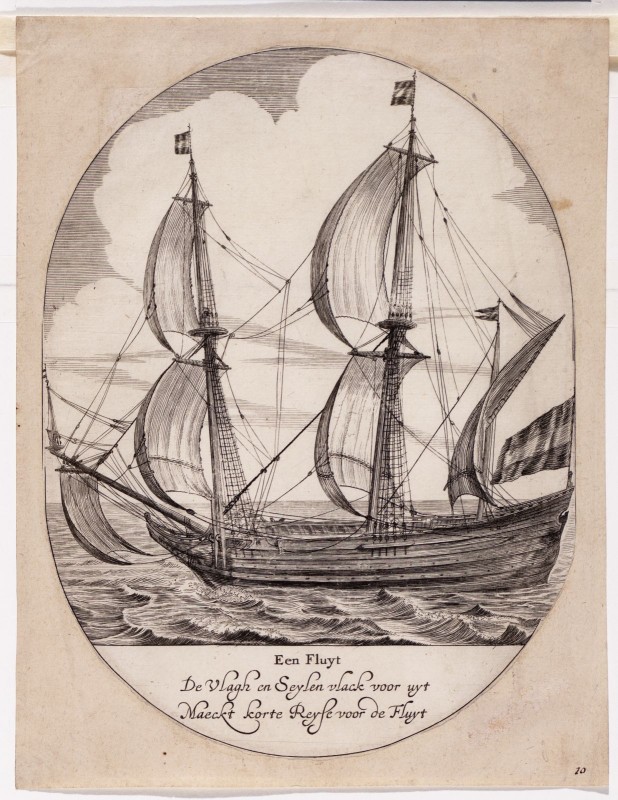 Een Fluyt
De Vlagh en Seylen vlack voor uyt
Maeckt korte Reyse voor de Fluyt
10